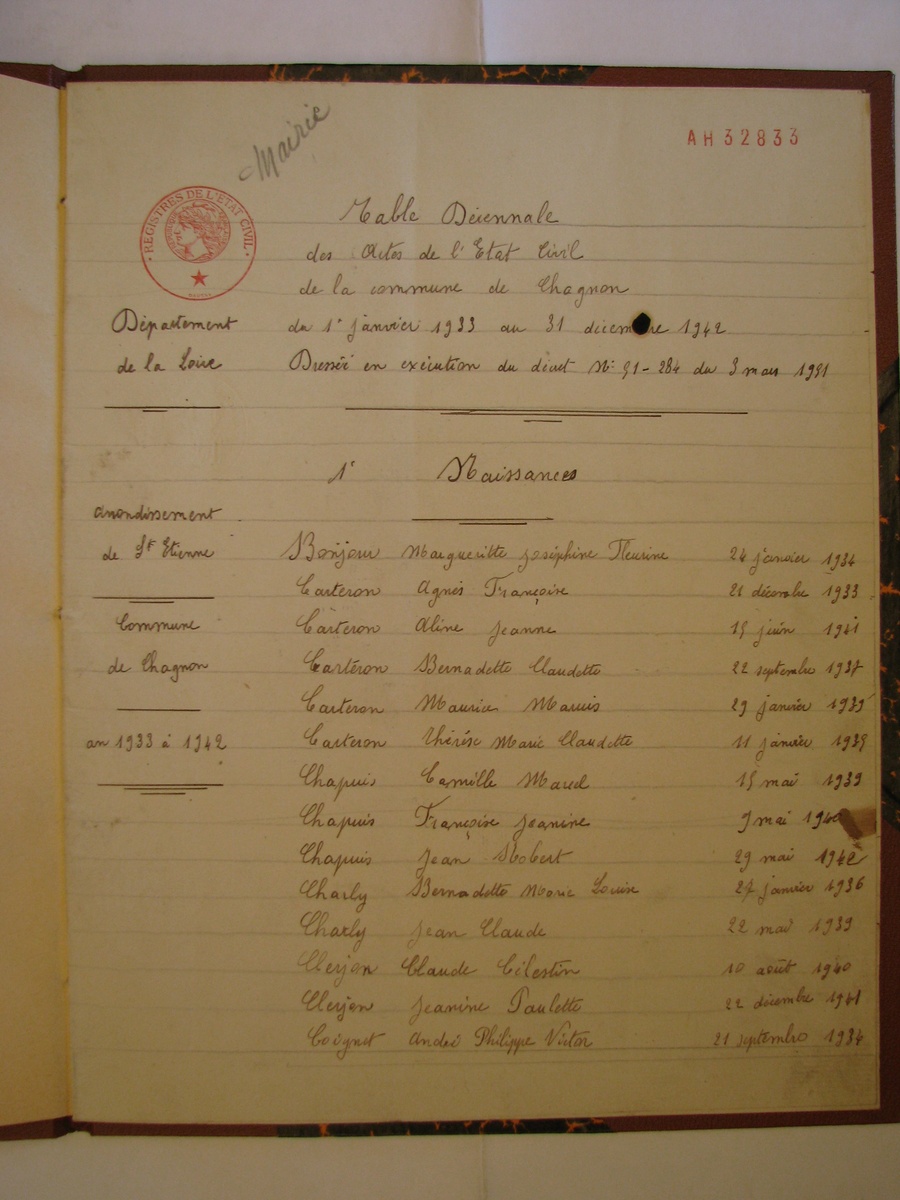 Mairie
AH 32833
REGISTRES DE L'ETAT CIVIL
Table Décennale
des Actes de l'Etat Civil
de la commune de Chagnon
du 1er janvier 1933 au 31 décembre 1942
Dressée en exécution du décret No 51-284 du 3 mars 1951
Département
de la Loire
1e Naissances
arrondissement
de St Etienne
Commune
de Chagnon
an 1933 à 1942
Bonjour Margueritte Joséphine Fleurine 24 janvier 1934
Carteron Agnès Françoise 21 décembre 1933
Carteron Aline Jeanne 15 juin 1941
Carteron Bernadette Claudette 22 septembre 1937
Carteron Maurice Marius 29 janvier
Carteron Thérèse Marie Claudette 11 janvier
Chapuis Camille Marcel 15 mai 1939
Chapuis Françoise Jeanine 9 mai 1940
Chapuis Jean Robert 29 mai 1942
Charly Bernadette Marie Louise 27 janvier 1936
Charly Jean Claude 22 mai 1939
Clerjon Claude Célestin 10 août 1940
Clerjon Jeanine Paulette 22 décembre 1941
Coignet André Philippe Victor 21 septembre 1934